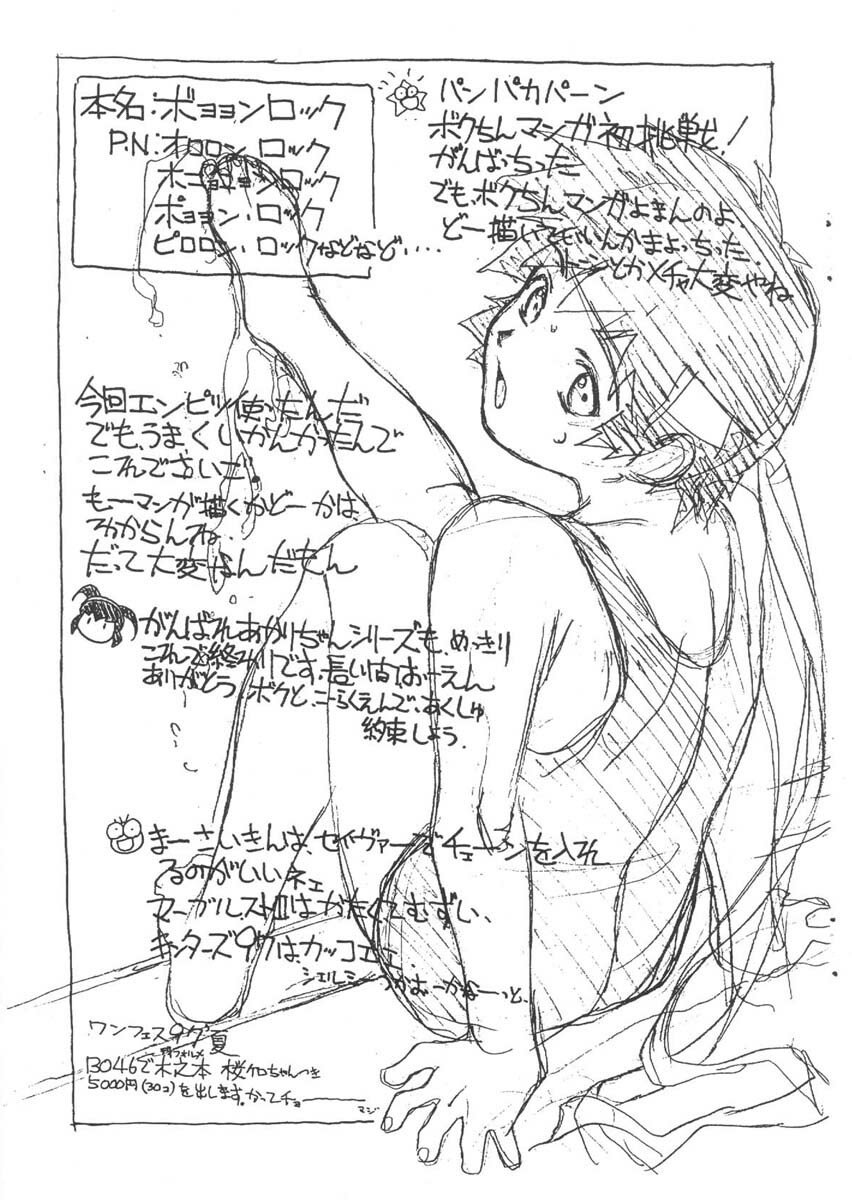 本名:ボョョンロック
P.N:オロロンロック
ポョョン・ロック
ピロロン・ロックなどなど....
パンパカパーン
ボクちんマンガ初挑戦!
がんばっちった
でも、ボクちんマンガよまんのよ、
どー描いていいんかまよっちった.
とかメチャ大変やね
今回エンピツ使ったんだ
でも、うまくいかんかったんで
これでさいご.
もーマンが描くかどーかは、
わからんね.
だって大変なんだもん
がんばれあかりちゃんシリーズも、めっきり
これで終わりです、長い間おーえん
ありがとう、ボクと、こーらくえんで、あくしゅ
約束しよう.
まーさいきんは、セイヴァーでチェーンを入れ
るのがいいネェ
マーヴルストⅡはかたくてむずい、
キングターズ97は、カッコエー
シェルミー
ワンフェス97夏
B046で木之本 桜ケロちゃんつき
5000円(30コ)を出します。かってチョ――
マジ